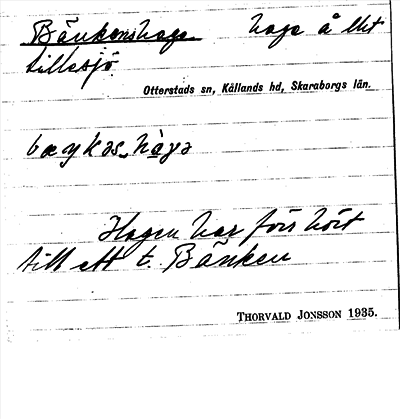 Bänkenshage hage å Ut
tillesjö.
Otterstads sn, Kållands hd, Skaraborgs län.
bæŋkəs hàgə
Hagen har förr hört
till ett t. Bänken
THORVALD JONSSON 1935.